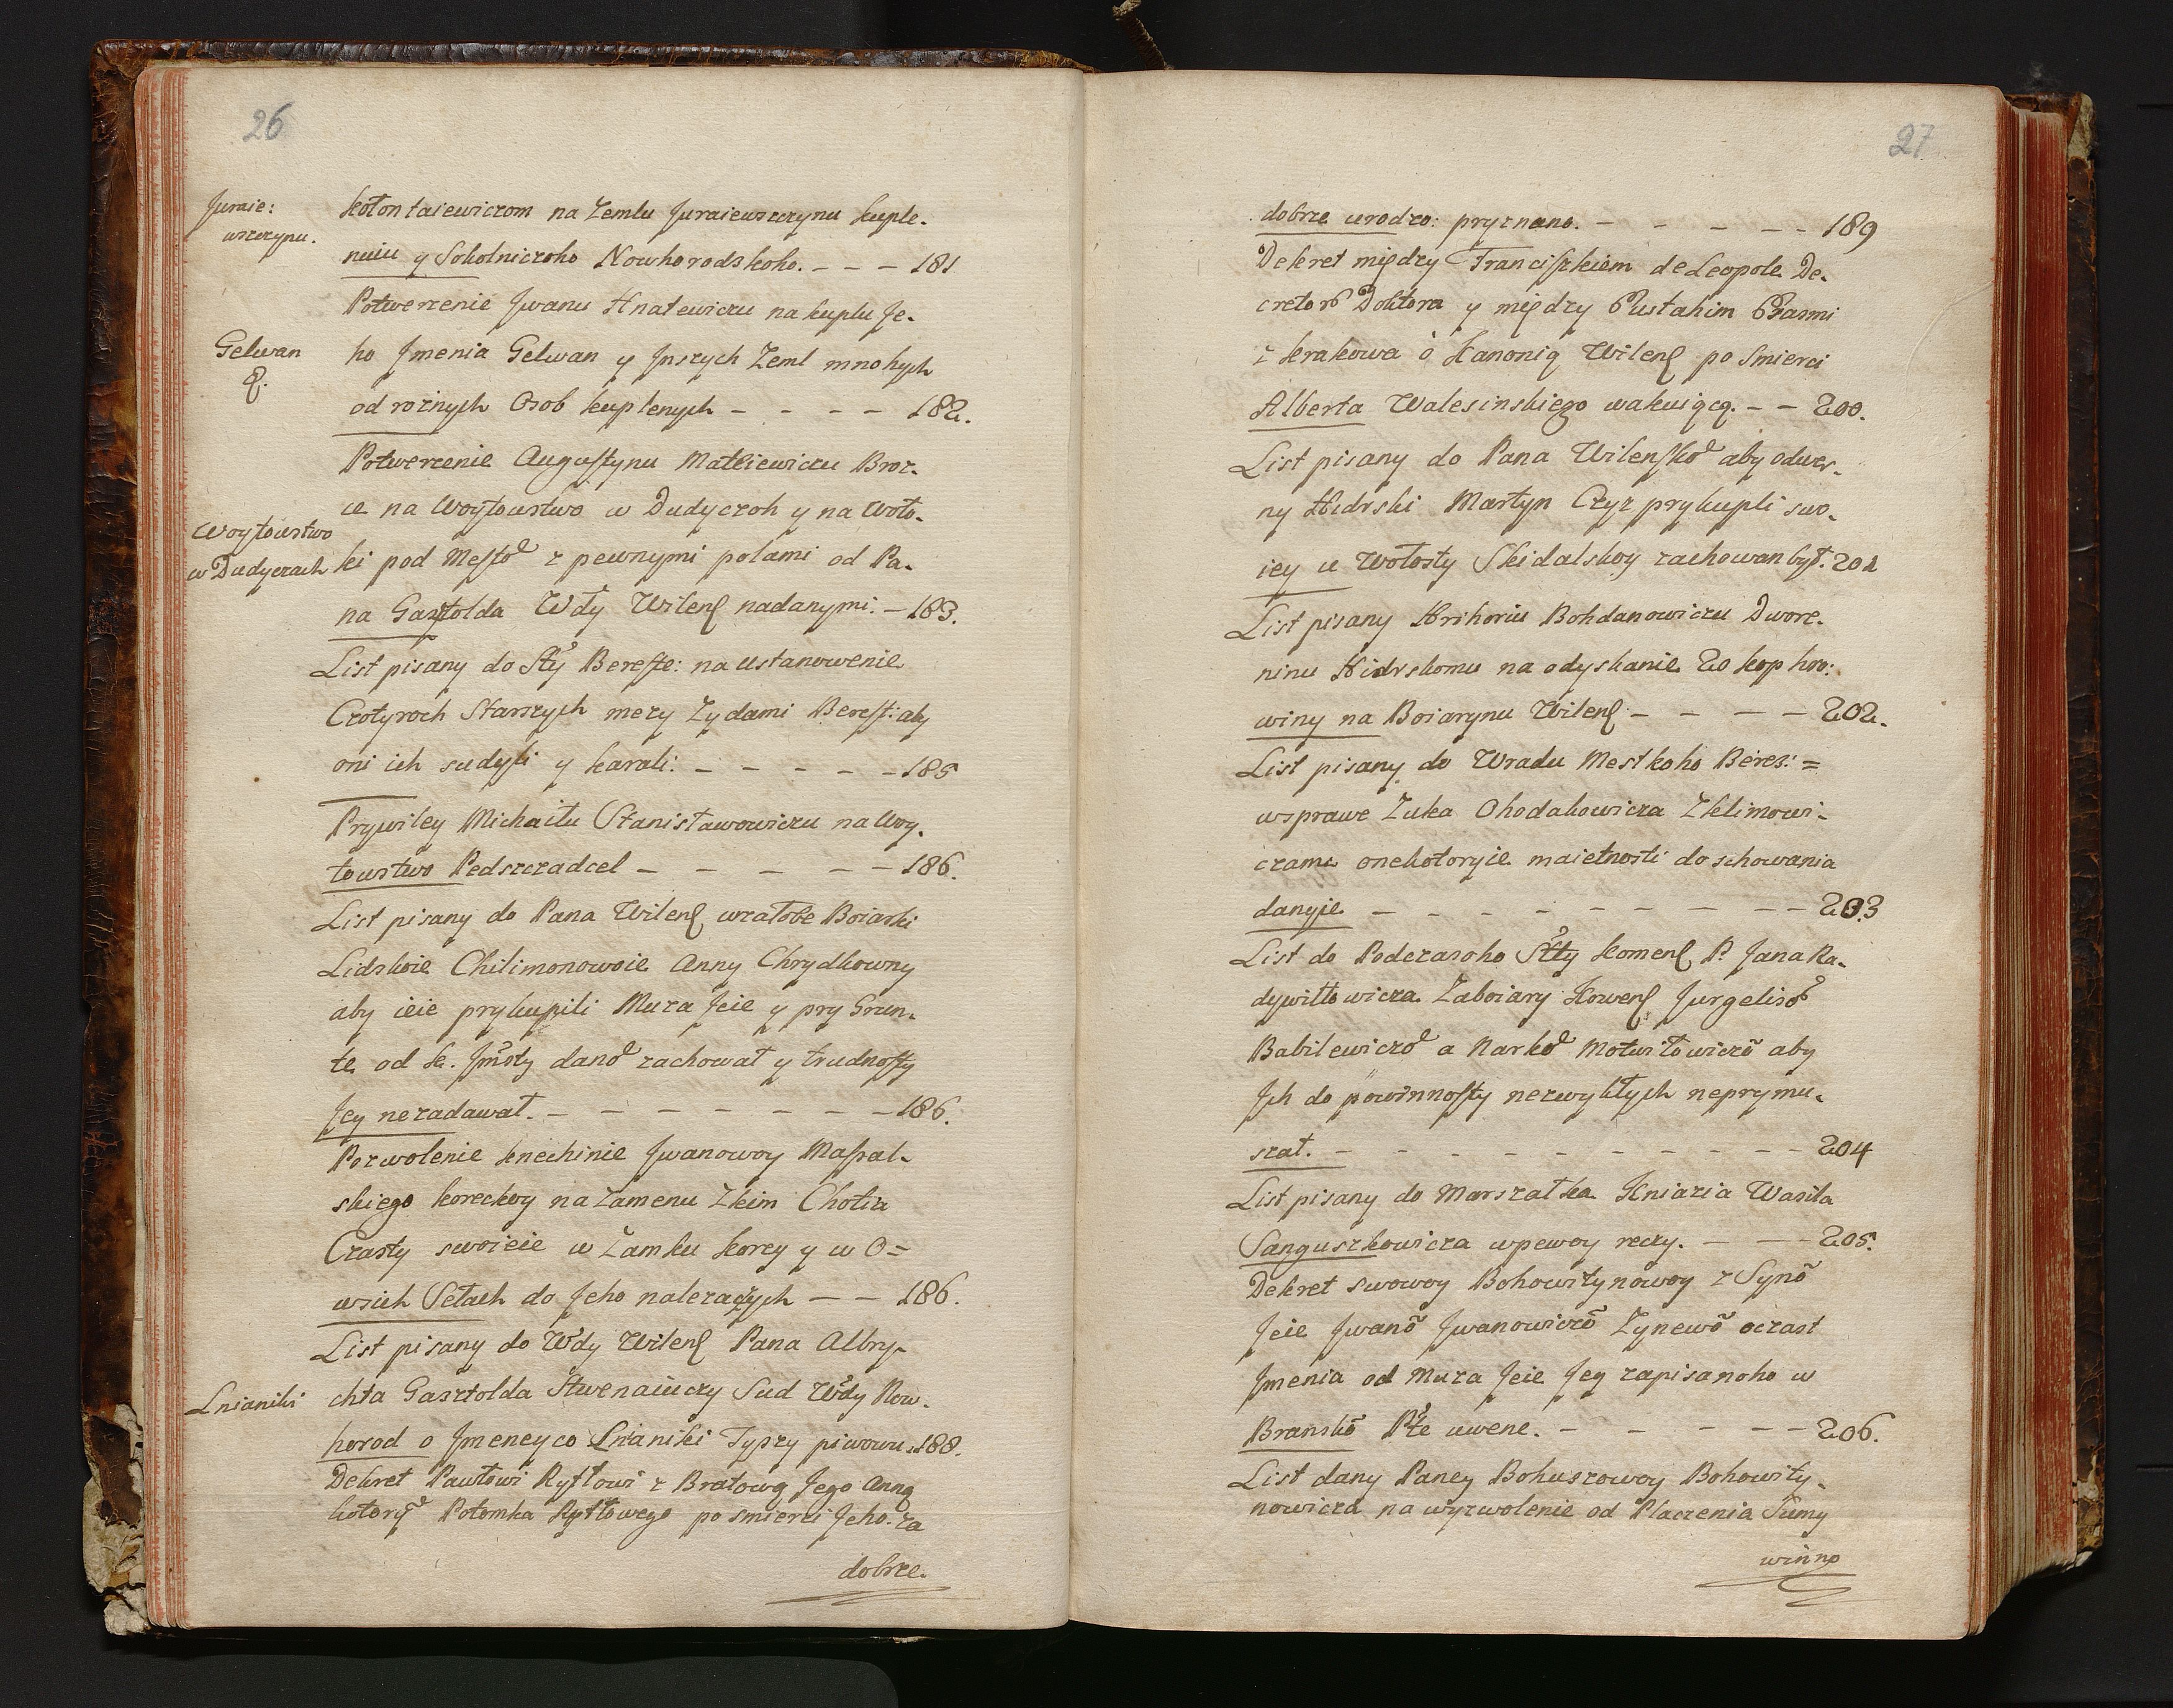 26
Juraie:
wszczynu.
Kołontaiewiczom na Zemlu Juraiewszczynu kuple-
nuiu y Sokolniczoho Nowhorodskoho. - - - 181
Potwerzenie Jwanu Hnatewiczu na kuplu Je-
Gelwan
ho Jmenia Gelwan y Jnszych Zeml mnohych
od roznych Osob kuplenych - - - - 182.
Potwerzenie Augustynu Matiewiczu Broz-
u na Woytowstwo w Dudyczoh y na Woło-
Woytowstwo
w Dudyczach
ki pod Mesto z pewnymi polami od Pa-
na Gasztolda Wdy Wilen nadanymi. - 183.
List pisany do Sty Bereste: na ustanowenie
Czotyroch Starszych mezy Zydami Berest: aby
oni ich sudyli y karali: - - - - - 185
Prywiley Michaiłu Stanisławowiczu na Woy-
towstwo Pedszczadcel - - - - - 186.
List pisany do Pana Wilen wzałobe Boiarki
Lidskoie Chilimonowoie Anny Chrydkowny
aby ieie prykupili Muza Jeie y pry Grun-
te od K. Jmsty dano zachował y trudnosty
Jey nezadawał. - - - - - - - 186.
Pozwolenie Knechinie Jwanowoy Masal-
skiego Koreckoy na Zamenu Zkim Chotia
Czasty swoieie w Zamku Korcy y w O=
wsich Sełach do Jeho nalezaczych - - 186.
List pisany do Wdy Wilen Pana Albry-
Lnianiki
chta Gasztolda Stwenaiuczy Sud Wdy Now-
horod o Jmeneyco Lnaniki Typzy piwowu. 188.
Dekret Pawłowi Ryłłowi z Bratową Jego Anną
kotory Potomka Ryłłowego po smierci Jeho. za
dobrze.
27
dobrze urodzo: pryznano. - - - - - 189
Dekret między Franciszkiem de Leopole De-
cretor Doktora y między Eustahim
z Krakowa o Kanonią Wilen po Smierci
Alberta Walesinskiego wakuiącą. - - 200.
List pisany do Pana Wilensko aby odwer-
ny Martyn Czyz prykupli swo-
iey u Wołosty Skidalskoy zachowan był. 201
List pisany Hrihoriu Bohdanowiczu Dwore-
ninu Hidrskomu na odyskanie 20 kop hro:
winy na Boiarynu Wilen - - - - 202.
List pisany do Wradu Mestkoho Berez: =
wsprawe Zuka Chodakowicza Zklimowi-
czami onekotoryie maietnosti do schowania
danyie - - - - - - - - - 203
List do Podczasoho Stty Komen P. Jana Ra-
dywiłłowicza Zaboiary Kowen Jurgeliso
Babilewiczo a Narko Motwiłowiczo aby
Jch do powinnosty nezwykłych neprymu-
szał. - - - - - - - - - - 204
List pisany do Marszałka Kniazia Wasila
Sanguszkowicza wpewoy reczy. - - - 205.
Dekret swowoy Bohowitynowoy z Syno
Jeie Jwano Jwanowiczo Zynewo oczast
Jmenia od Muza Jeie Jey zapisanoho w
Bransko Pte uwene. - - - - - 206.
List dany Paney Bohuszowoy Bohowity-
nowicza na wyzwolenie od Placzenia Sumy
winno